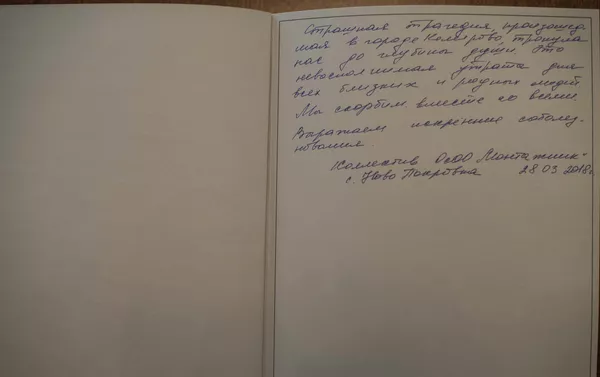 Страшная трагедия, произошед
шая в городе Кемерово, тронула
нас до глубины души. Это
невосполнимая утрата для
всех близких и родных людей
Мы скорбим вместе со всеми.
Выражаем искренние соболез
нования.
Коллектив ОсОО „Монтажник"
с. Ново Покровка 28.03.2018г